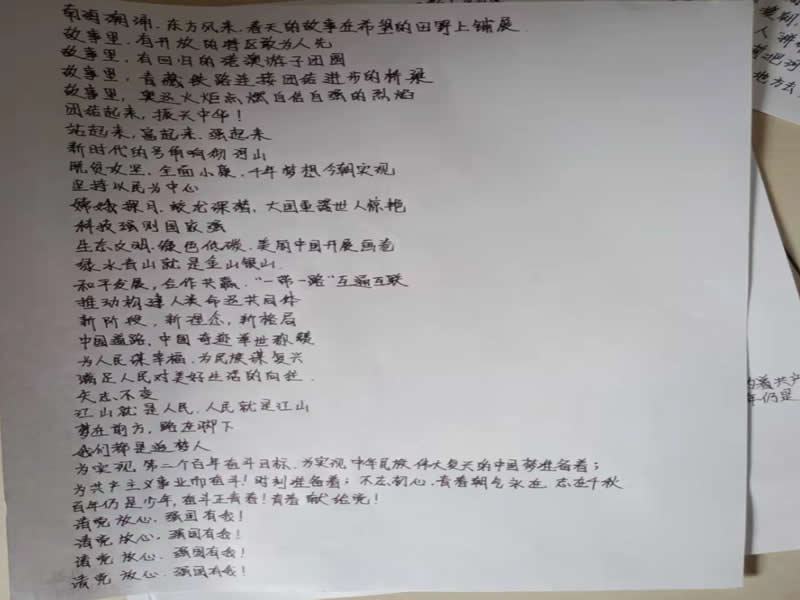 南海潮涌，东方风来，春天的故事在希望的田野上铺展
故事里，有开放的特区敢为人先
故事里，有回归的港澳游子团圆
故事里，青藏铁路连接团结进步的桥梁
故事里，奥运火炬点燃自信自强的烈焰
团结起来，振兴中华！
站起来，富起来，强起来
新时代的号角响彻河山
脱贫攻坚，全面小康，千年梦想今朝实现
坚持以人民为中心
嫦娥探月，蛟龙深潜，大国重器世人惊艳
科技强则国家强
生态文明，绿色低碳，美丽中国开展画卷
绿水青山就是金山银山
和平发展，合作共赢，“一带一路”互通互联
推动构建人类命运共同体
新阶段，新理念，新格局
中国道路，中国奇迹举世称赞
为人民谋幸福，为民族谋复兴
满足人民对美好生活的向往
矢志不变
江山就是人民，人民就是江山
梦在前方，路在脚下
我们都是追梦人
为实现第二个百年奋斗目标，为实现中华民族伟大复兴的中国梦准备着；
为共产主义事业而奋斗！时刻准备着；不忘初心，青春朝气永在，志在千秋
百年仍是少年，奋斗正青春！青春献给党！
请党放心，强国有我！
请党放心，强国有我！
请党放心，强国有我！
请党放心，强国有我！